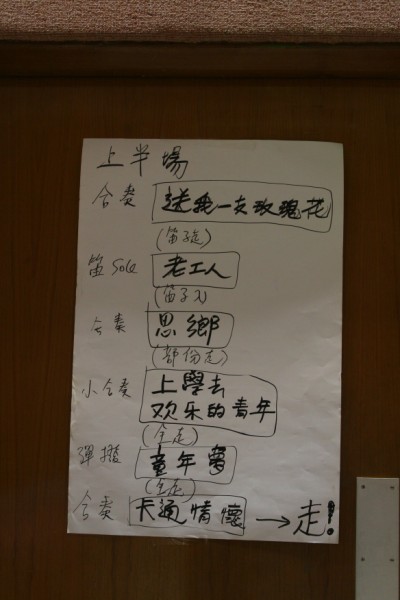 上半場
合奏 送我一支玫瑰花
(笛子走)
笛 Solo 老工人
(笛子入)
合奏 思鄉
(部份走)
小合奏 上學去
欢乐的青年
(全走)
彈撥 童年夢
(全走)
合奏 卡通情懷 → 走!